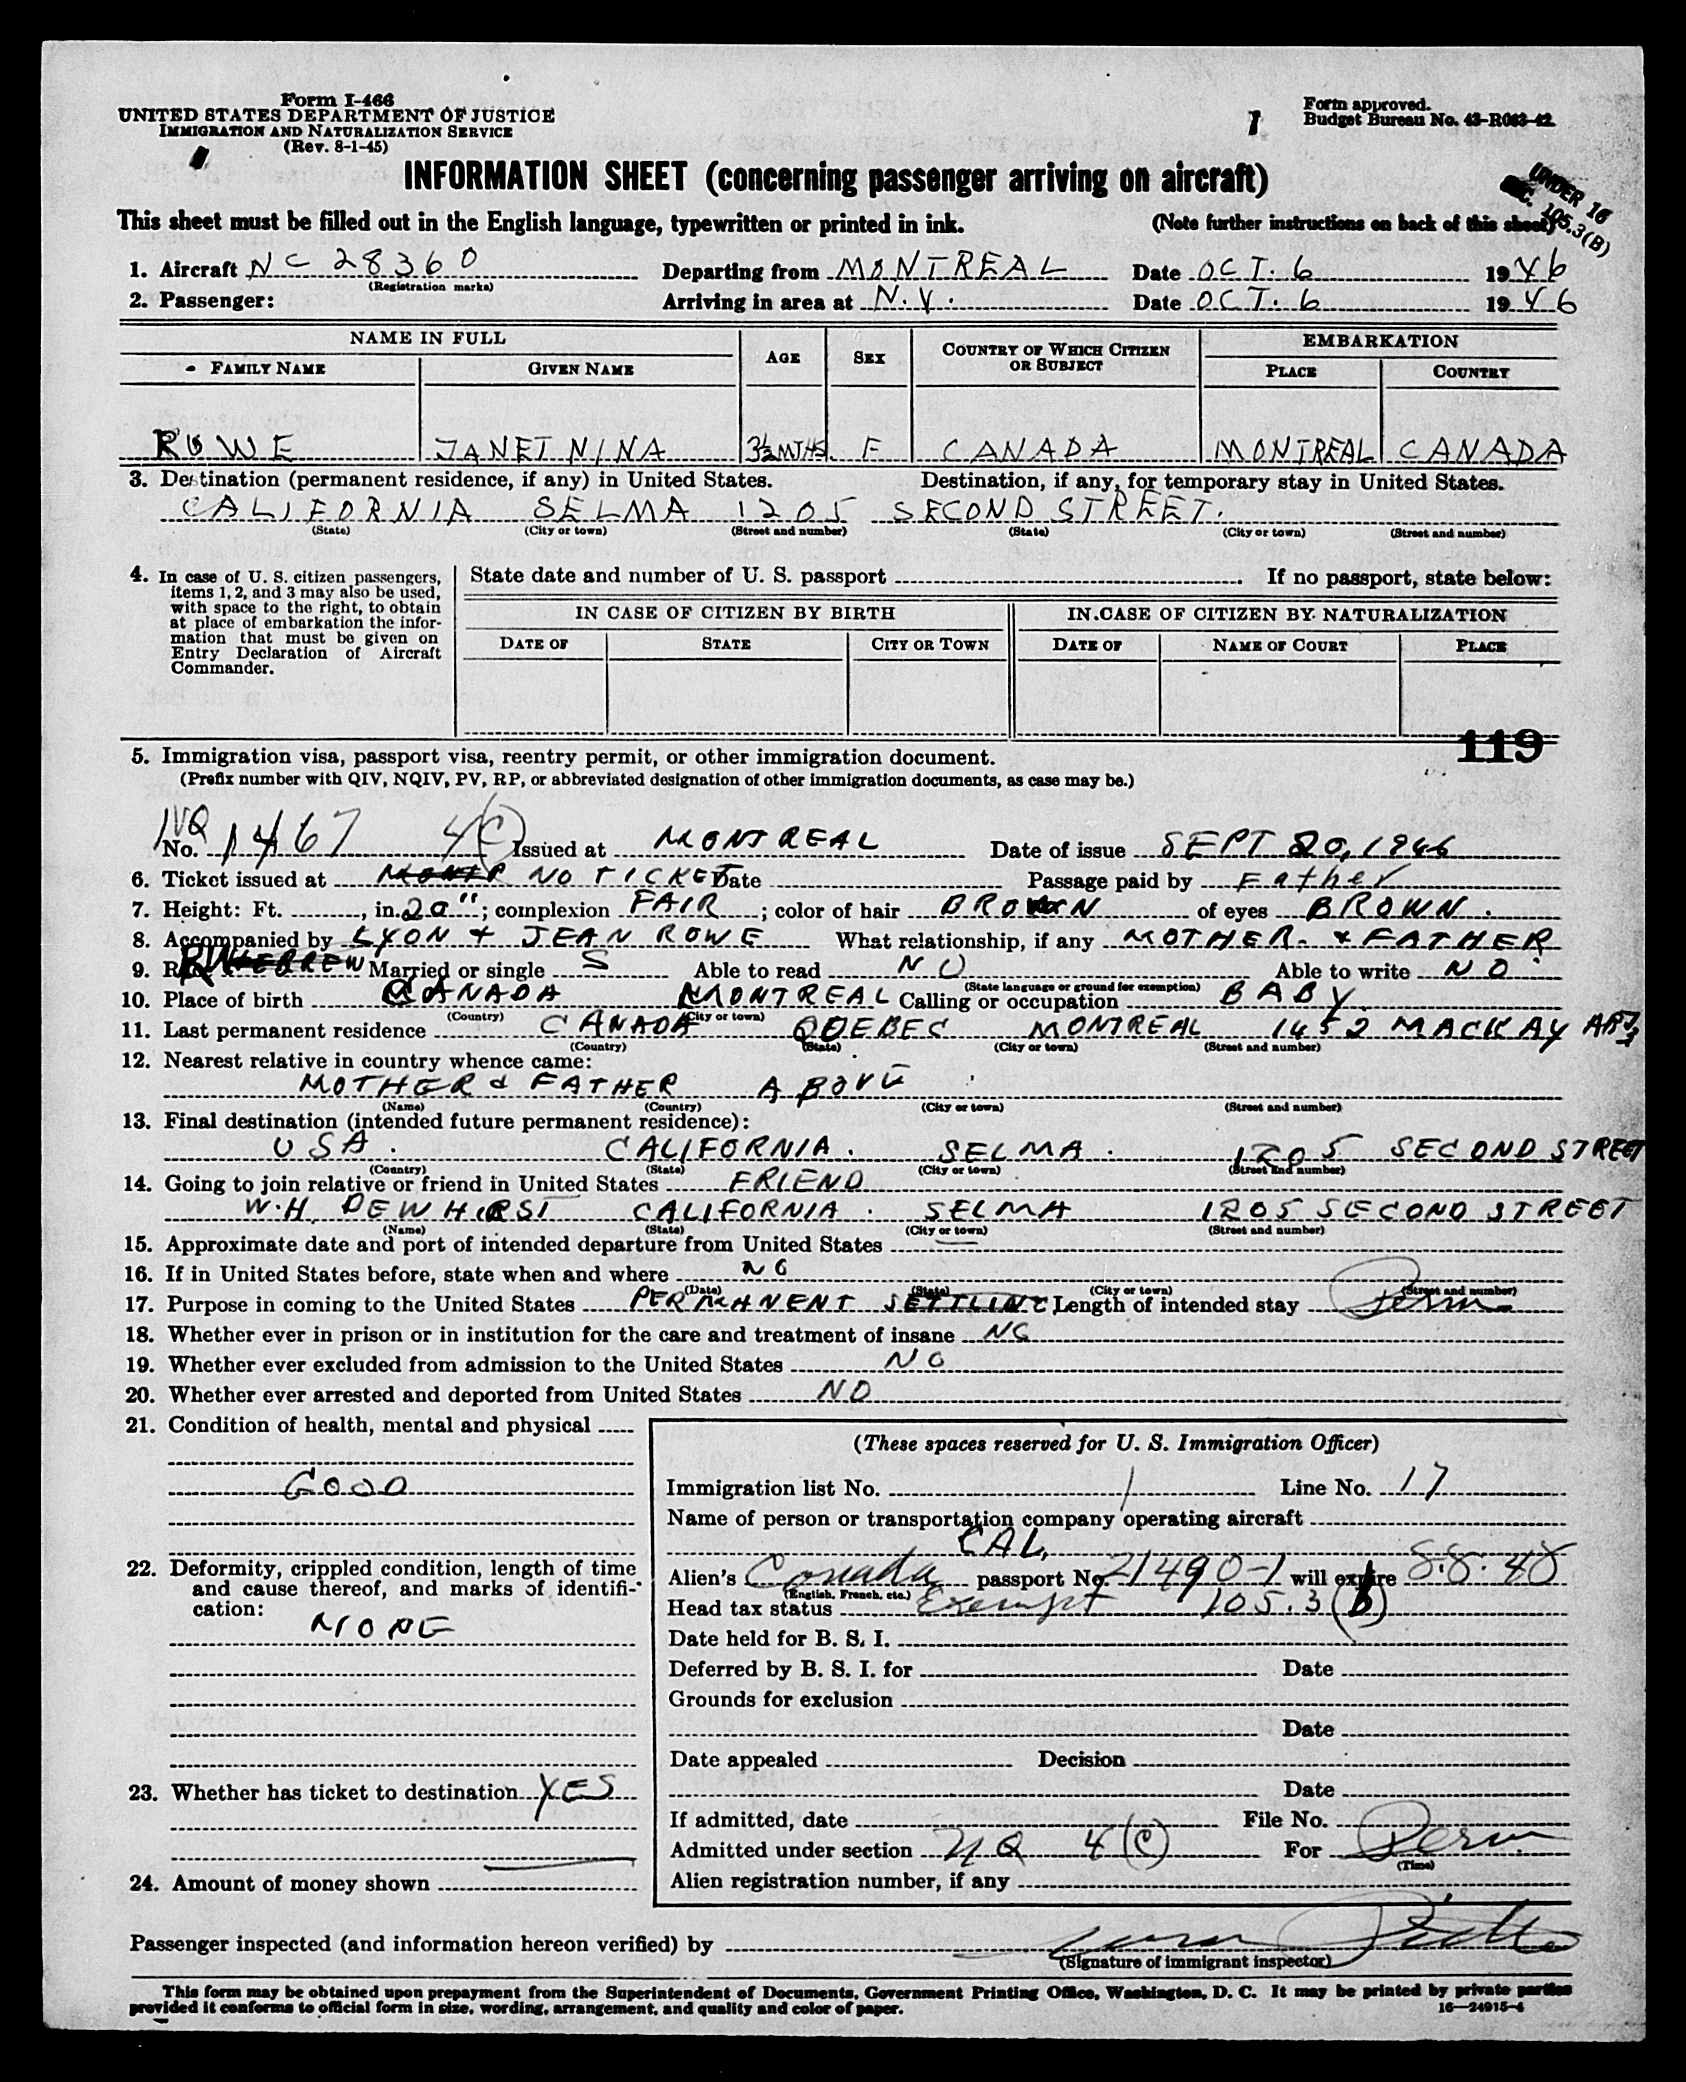 Form I-466
UNITED STATES DEPARTMENT OF JUSTICE
IMMIGRATION AND NATURALIZATION SERVICE
(Rev. 8-1-45)
Form approved.
Budget Bureau No. 43-R083-42
INFORMATION SHEET (concerning passenger arriving on aircraft)
UNDER 16
SEC. 105.3(B)
This sheet must be filled out in the English language, typewritten or printed in ink. (Note further instructions on back of this sheet)
1. Aircraft NC 28360 Departing from MONTREAL Date OCT. 6 1946
(Registration marks)
2. Passenger: Arriving in area at N.Y. Date OCT. 6 1946
NAME IN FULL AGE SEX COUNTRY OF WHICH CITIZEN OR SUBJECT EMBARKATION
FAMILY NAME GIVEN NAME PLACE COUNTRY
ROWE JANET NINA 3½ MTHS F CANADA MONTREAL CANADA
3. Destination (permanent residence, if any) in United States. Destination, if any, for temporary stay in United States.
CALIFORNIA SELMA 1205 SECOND STREET.
(State) (City or town) (Street and number) (State) (City or town) (Street and number)
4. In case of U. S. citizen passengers, items 1, 2, and 3 may also be used, with space to the right, to obtain at place of embarkation the information that must be given on Entry Declaration of Aircraft Commander.
State date and number of U. S. passport . If no passport, state below:
IN CASE OF CITIZEN BY BIRTH IN CASE OF CITIZEN BY NATURALIZATION
DATE OF STATE CITY OR TOWN DATE OF NAME OF COURT PLACE
119
5. Immigration visa, passport visa, reentry permit, or other immigration document.
(Prefix number with QIV, NQIV, PV, RP, or abbreviated designation of other immigration documents, as case may be.)
NQ
No. 1467 4(C) Issued at MONTREAL Date of issue SEPT 20, 1946
6. Ticket issued at NO TICKET Date Passage paid by Father
7. Height: Ft. , in. 20"; complexion FAIR; color of hair BROWN of eyes BROWN.
8. Accompanied by LYON + JEAN ROWE What relationship, if any MOTHER & FATHER
9. HEBREW Married or single S Able to read NO Able to write NO
(State language or ground for exemption)
10. Place of birth CANADA MONTREAL Calling or occupation BABY
(Country) (City or town)
11. Last permanent residence CANADA QUEBEC MONTREAL 1452 MACKAY APT 3
(Country) (State) (City or town) (Street and number)
12. Nearest relative in country whence came:
MOTHER & FATHER ABOVE
(Name) (Country) (City or town) (Street and number)
13. Final destination (intended future permanent residence):
USA. CALIFORNIA. SELMA. 1205 SECOND STREET
(Country) (State) (City or town) (Street and number)
14. Going to join relative or friend in United States FRIEND
W.H. DEWHIRST CALIFORNIA. SELMA 1205 SECOND STREET
(Name) (State) (City or town) (Street and number)
15. Approximate date and port of intended departure from United States —
16. If in United States before, state when and where NO
(Date) (State) (City or town) (Street and number)
17. Purpose in coming to the United States PERMANENT SETTLING Length of intended stay Perm
18. Whether ever in prison or in institution for the care and treatment of insane NO
19. Whether ever excluded from admission to the United States NO
20. Whether ever arrested and deported from United States NO
21. Condition of health, mental and physical
GOOD
22. Deformity, crippled condition, length of time and cause thereof, and marks of identification:
NONE
23. Whether has ticket to destination YES
24. Amount of money shown
(These spaces reserved for U. S. Immigration Officer)
Immigration list No. 1 Line No. 17
Name of person or transportation company operating aircraft
CAL
Alien's Canada passport No. 21490-1 will expire 8-8-48
(English, French, etc.)
Head tax status Exempt 105.3(b)
Date held for B. S. I.
Deferred by B. S. I. for Date
Grounds for exclusion
Date
Date appealed Decision
Date
If admitted, date File No.
Admitted under section NQ 4(C) For Perm.
(Time)
Alien registration number, if any
Passenger inspected (and information hereon verified) by
(Signature of immigrant inspector)
This form may be obtained upon prepayment from the Superintendent of Documents, Government Printing Office, Washington, D. C. It may be printed by private parties
provided it conforms to official form in size, wording, arrangement, and quality and color of paper. 16—24915-4